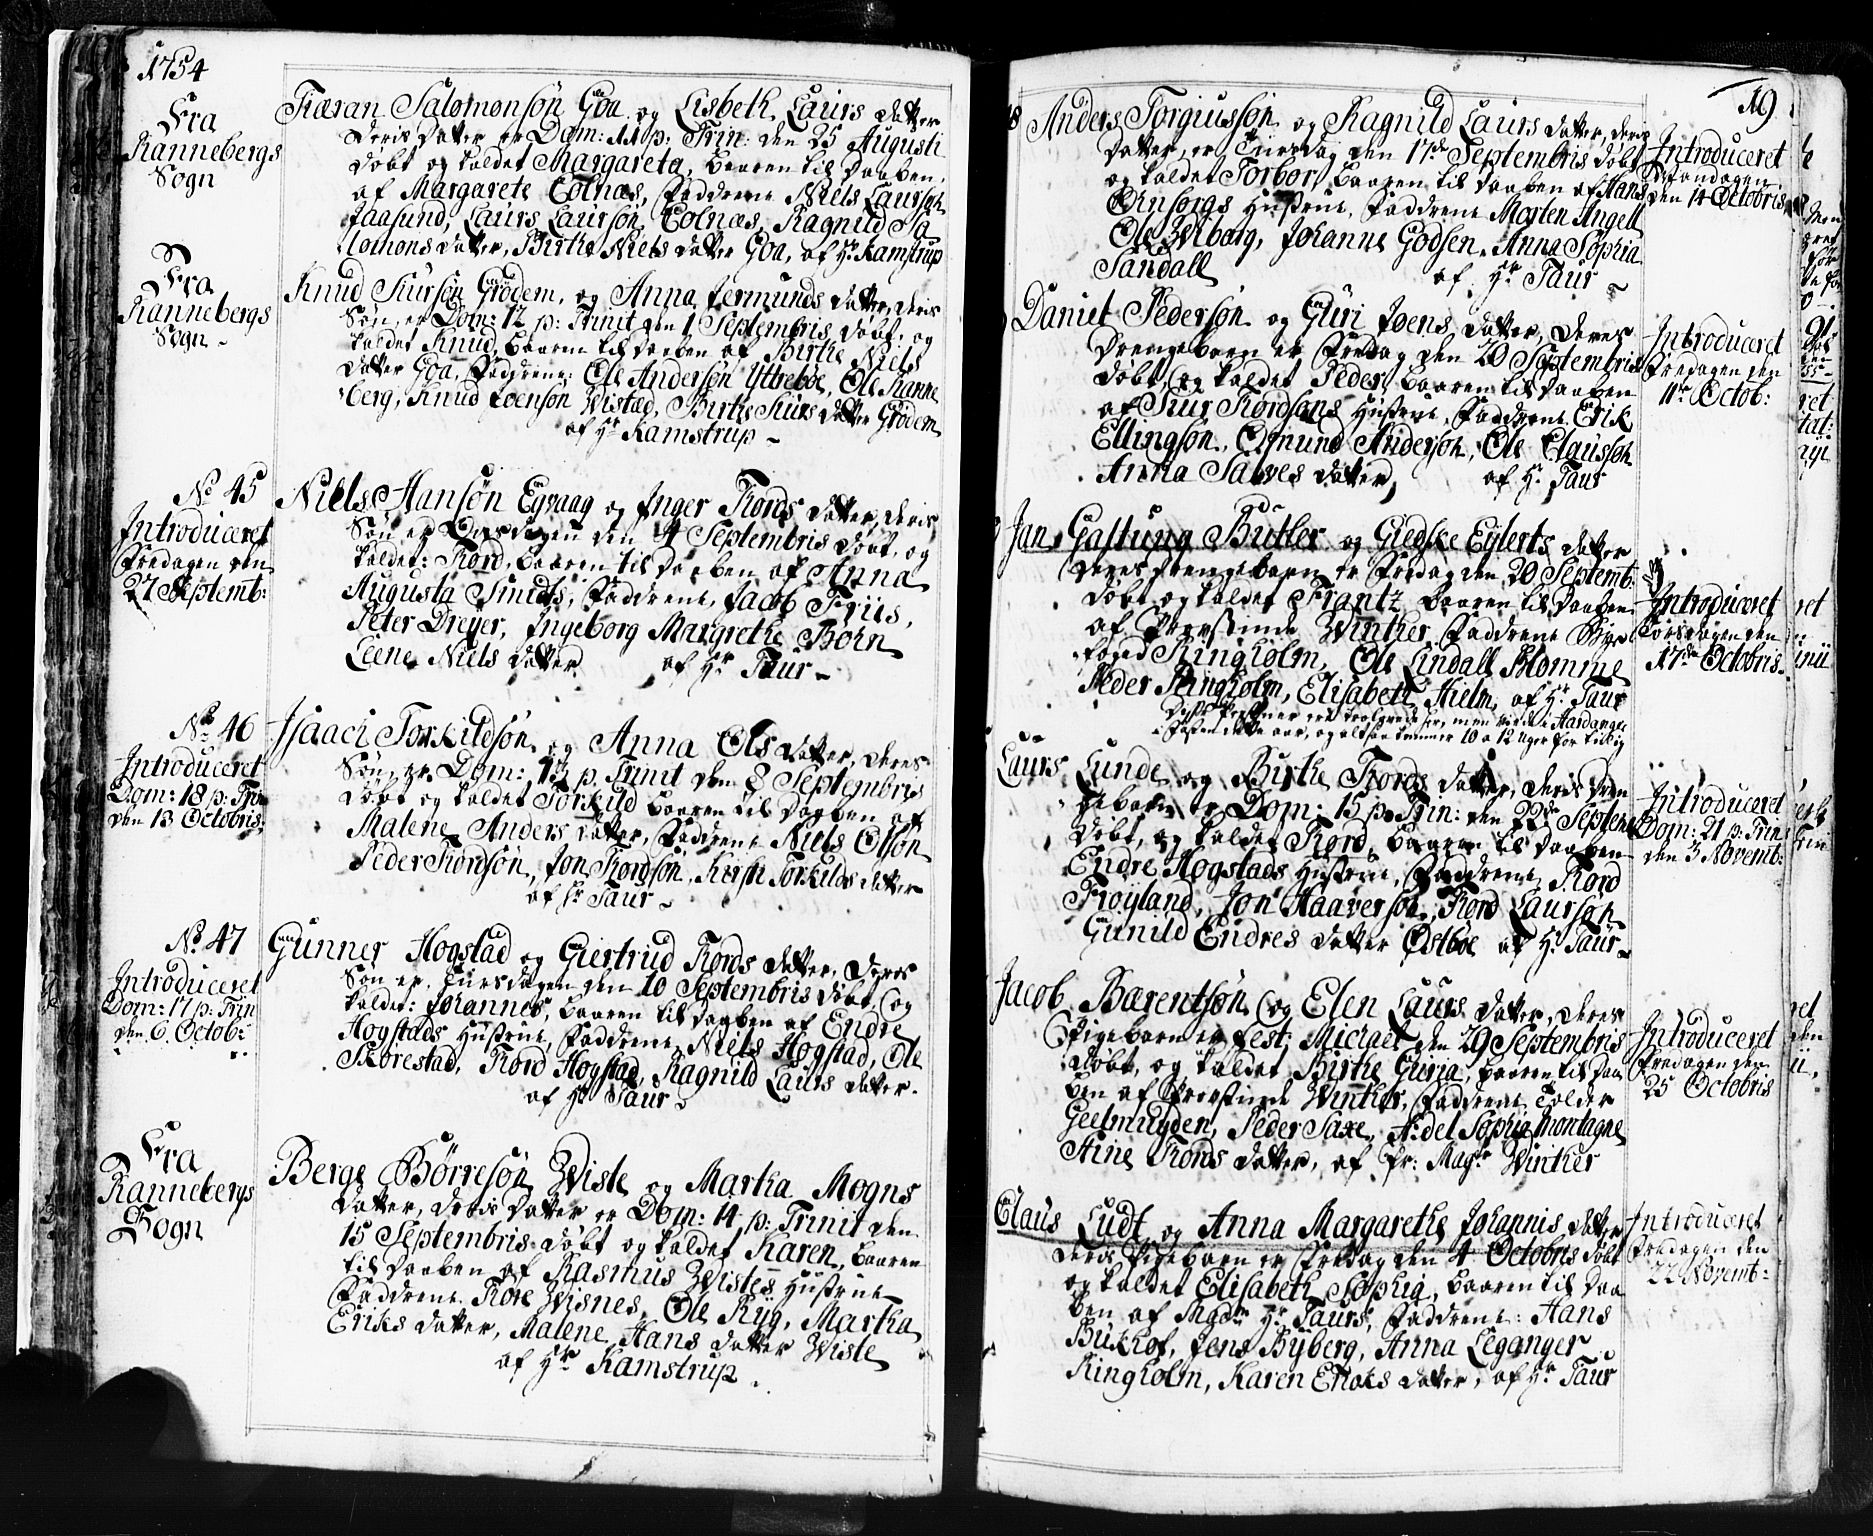 1754
Fra
Rannebergs
Sogn
Tiæran Salomonsøn Goa og Lisbeth Laurs datter
Deris Datter er Dom: 11 p: Trin: den 25 Augusti
døbt og kaldet Margareta, baaren til daaben
af Margarete Tolnæs, Faddrene Niels Laursøn
Jaasund, Laurs Laursøn Tolnæs, Ragnild Sa
lomons datter, Birthe Niels datter Goa, af Hr Kamstrup
Fra
Rannebergs
Sogn
Knud Siursøn Grødem, og Anna Jermunds datter, deris
Søn, er Dom: 12 p: Trinit den 1 Septembris døbt, og
kaldet Knud, baaren til daaben af Birthe Niels
datter Goa, Faddrene: Ole Andersøn Yttrebøe, Ole Ranne
berg, Knud Joensøn Wistad, Birthe Siurs datter Grødem
af Hr Kamstrup
No 45
Introduceret
Fredagen den
27 Septemb:
Niels Hansøn Egvaag og Inger Tords datter, deris
Søn er Onsdagen den 4 Septembris døbt, og
kaldet: Tord, baaren til Daaben af Anna
Augusta Smidts, Faddrene, Jacob Friis,
Peter Dreyer, Ingeborg Margrethe Bohn
Leene Niels datter af Hr Taur
No 46
Introduceret
Dom: 18 p: Trin
den 13 Octobris
Isaach Torkildsøn og Anna Ols datter, deres
Søn, er Dom: 13 p. Trinit den 8 Septembris
døbt og kaldet Torkild baaren til Daaben af
Malene Anders datter, Faddrene Niels Olsøn
Peder Tordsøn, Jon Tordsøn, Kirsti Torkilds datter
af Hr Taur
No 47
Introduceret
Dom: 17 p: Trin
den 6 Octob:
Gunner Hogstad og Giertrud Tords datter, deres
Søn er Tiirsdagen den 10 Septembris døbt, og
kaldet: Johannes, baaren til daaben af Endre
Hogstads Hustrue, Faddrene, Niels Hogstad, Ole
Skorestad, Tord Hogstad, Ragnild Laurs datter
af Hr Taur
Fra
Rannebergs
Sogn
Berge Børresøn Wiste og Martha Mogns
datter, deris datter er Dom: 14 p: Trinit den
15 Septembris døbt og kaldet Karen, baaren
til daaben af Rasmus Wistes Hustrue
Faddrene Tore Wisnes, Ole Ryg, Martha
Eriks datter, Malene Hans datter Wiste
af Hr Kamstrup
19
8 Anders Torgiusson og Ragnild Laurs datter, deris
datter, er Tiirsdag den 17de Septembris døbt
og kaldet Torbor, baaren til daaben af Hans
Hustrue, Faddrene Morten Angell
Ole Wiborg, Johanne Godsen, Anna Sophia
Sandall af Hr Taur
Introduceret
Mandagen
den 14 Octobris
Daniel Pedersøn og Guri Joens datter, deres
Drengebarn er Fredag den 20 Septembris
døbt, og kaldet Peder, baaren til daaben
af Siur Tordsøns Hustrue, Faddrene Erik
Ellingsøn, Osmund Andersøn, Ole Claussøn
Anna Salves datter, af Hr Taur
Introduceret
Fredagen den
11te Octob:
Jan Galtung Butler og Giedske Eylerts datter
deres drengebarn er Fredag den 20 Septemb:
døbt og kaldet Frantz baaren til Daaben
af Provstinde Winther, Faddrene Bye
foged Ringholm, Ole Lindall Blomme
Peder Ringholm, Elisabeth Hielm, af Hr Taur
Disse Personer ere trolovede her, men viede i Hardanger
i Fasten dette aar, og altsaa kommer 10 a 12 Uger for tilig
Introduceret
Torsdagen den
17de Octobris
Laurs Lunde og Birthe Tords datter, deris dren
gebarn er Dom: 15 p. Trin: den 22de Septemb
døbt, og kaldet Tord, baaren til daaben
Endre Hogstads Hustrue, Faddrene Tord
Frøyland, Jon Haaversøn, Tord Laursøn
Gunild Endres datter Østbøe af Hr Taur
Introduceret
Dom: 21 p: Trin
den 3 Novemb:
Jacob Bærentsøn og Elen Laurs datter, deres
Pigebarn er Fest: Michael den 29 Septembris
døbt, og kaldet Birthe Guria, baaren til daa
ben af Provstinde Winther, Faddrene, Tolder
Geelmuyden, Peder Saxe, Aidel Sophia Montagne
Stine Tords datter, af Pr: Magr Winther
Introduceret
Fredagen den
25 Octobris
Claus Ludt og Anna Margarethe Johannis datter
deris Pigebarn er Fredag den 4 Octobris døbt
og kaldet Elisabeth Sophia, baaren til daa
ben af Madme Hr Taurs, Faddrene: Hans
Bukhof, Jens Byberg, Anna Leganger
Ringholm, Karen Enoks datter, af Hr Taur
Introduceret
Fredagen den
22 Novemb: